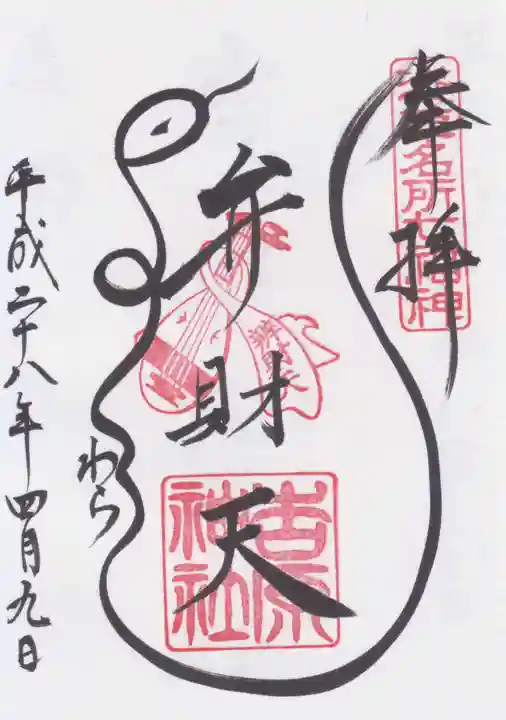 奉拝
名所七福神
弁財天
吉原神社
わら
平成二十八年四月九日